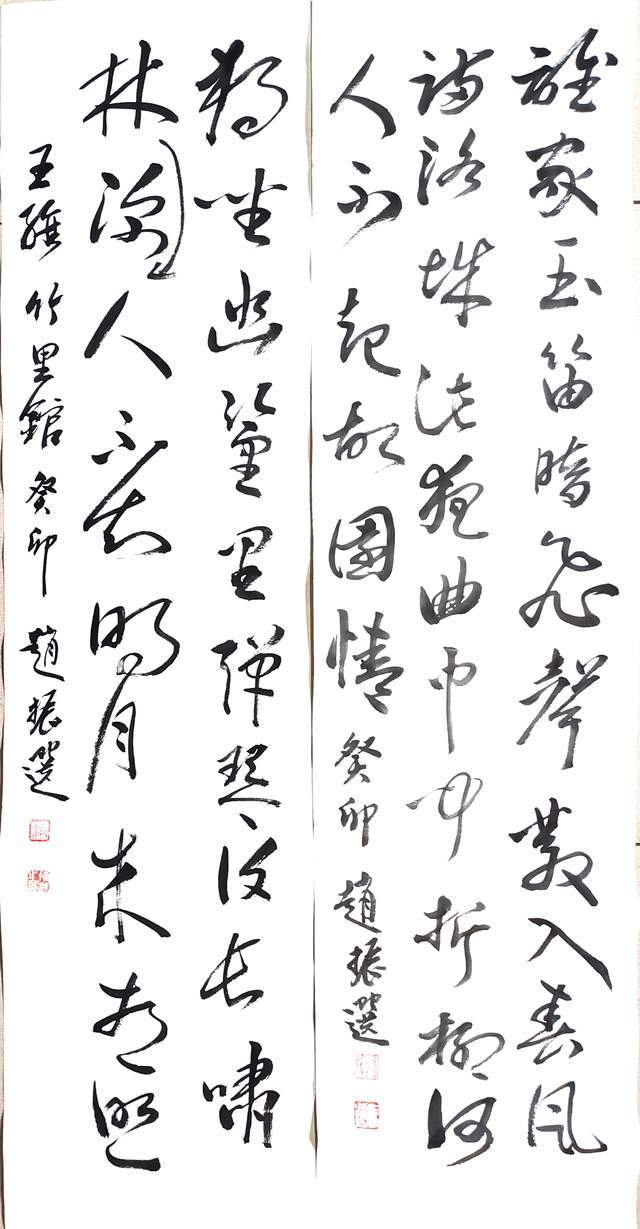 誰家玉笛暗飛聲散入春風
滿洛城此夜曲中聞折柳何
人不起故園情
癸卯 趙振選
獨坐幽篁里彈琴復長嘯
林深人不知明月来相照
王維 竹里館 癸卯 趙振選